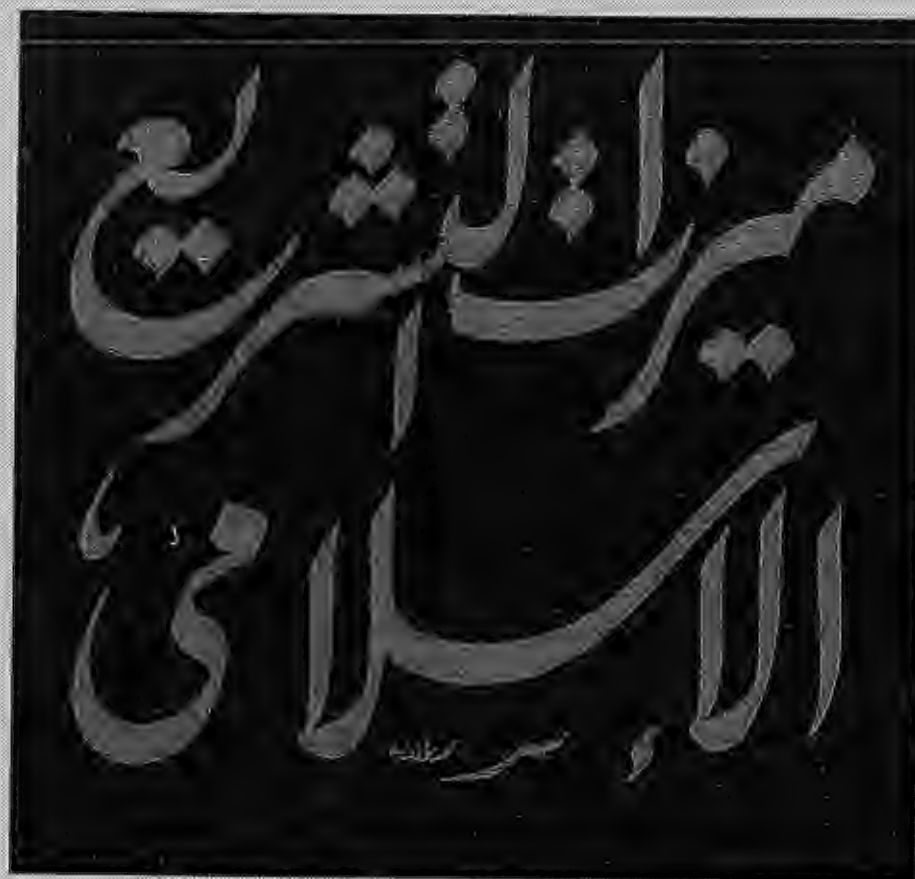 ميزات التشريع
الإسلامي